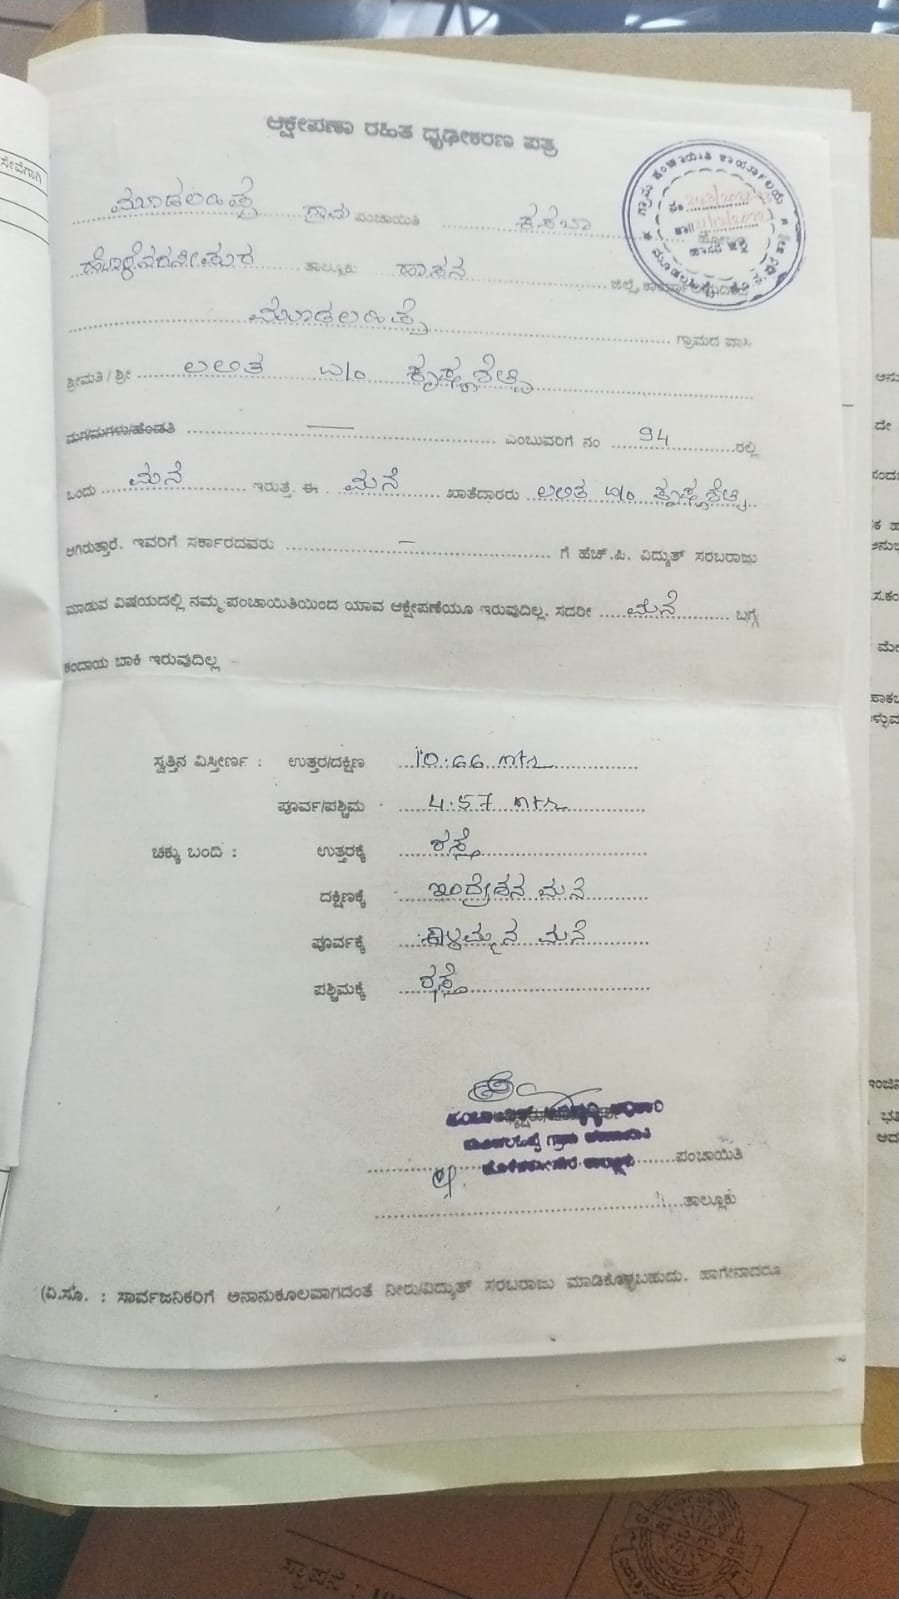 ಆಕ್ಷೇಪಣಾ ರಹಿತ ಧೃಢೀಕರಣ ಪತ್ರ
ಮೂಡಲಹಿಪ್ಪೆ ಗ್ರಾಮ ಪಂಚಾಯಿತಿ ಕಸಬಾ
ಹೊಳೆನರಸೀಪುರ ತಾಲ್ಲೂಕು ಹಾಸನ ಜಿಲ್ಲೆ,
ಮೂಡಲಹಿಪ್ಪೆ ಗ್ರಾಮದ ವಾಸಿ
ಶ್ರೀಮತಿ / ಶ್ರೀ ಲಲಿತ W/o ಕೃಷ್ಣಶೆಟ್ಟಿ
ಮಗ/ಮಗಳು/ಹೆಂಡತಿ — ಎಂಬುವರಿಗೆ ನಂ 94 ರಲ್ಲಿ
ಒಂದು ಮನೆ ಇರುತ್ತೆ. ಈ ಮನೆ ಖಾತೆದಾರರು ಲಲಿತ W/o ಕೃಷ್ಣಶೆಟ್ಟಿ
ಆಗಿರುತ್ತಾರೆ. ಇವರಿಗೆ ಸರ್ಕಾರದವರು — ಗೆ ಹೆಚ್.ಪಿ. ವಿದ್ಯುತ್ ಸರಬರಾಜು
ಮಾಡುವ ವಿಷಯದಲ್ಲಿ ನಮ್ಮ ಪಂಚಾಯಿತಿಯಿಂದ ಯಾವ ಆಕ್ಷೇಪಣೆಯೂ ಇರುವುದಿಲ್ಲ. ಸದರೀ ಮನೆ ಬಗ್ಗೆ
ಕಂದಾಯ ಬಾಕಿ ಇರುವುದಿಲ್ಲ
ಸ್ವತ್ತಿನ ವಿಸ್ತೀರ್ಣ : ಉತ್ತರ/ದಕ್ಷಿಣ 10.66 mtr
ಪೂರ್ವ/ಪಶ್ಚಿಮ 4.57 mtr
ಚಕ್ಕು ಬಂದಿ : ಉತ್ತರಕ್ಕೆ ರಸ್ತೆ
ದಕ್ಷಿಣಕ್ಕೆ ಇಂದ್ರೇಶನ ಮನೆ
ಪೂರ್ವಕ್ಕೆ ಕಾಳಮ್ಮನ ಮನೆ
ಪಶ್ಚಿಮಕ್ಕೆ ರಸ್ತೆ
ಪಂಚಾಯಿತಿ
ತಾಲ್ಲೂಕು
(ವಿ.ಸೂ. : ಸಾರ್ವಜನಿಕರಿಗೆ ಅನಾನುಕೂಲವಾಗದಂತೆ ನೀರು/ವಿದ್ಯುತ್ ಸರಬರಾಜು ಮಾಡಿಕೊಳ್ಳಬಹುದು. ಹಾಗೇನಾದರೂ